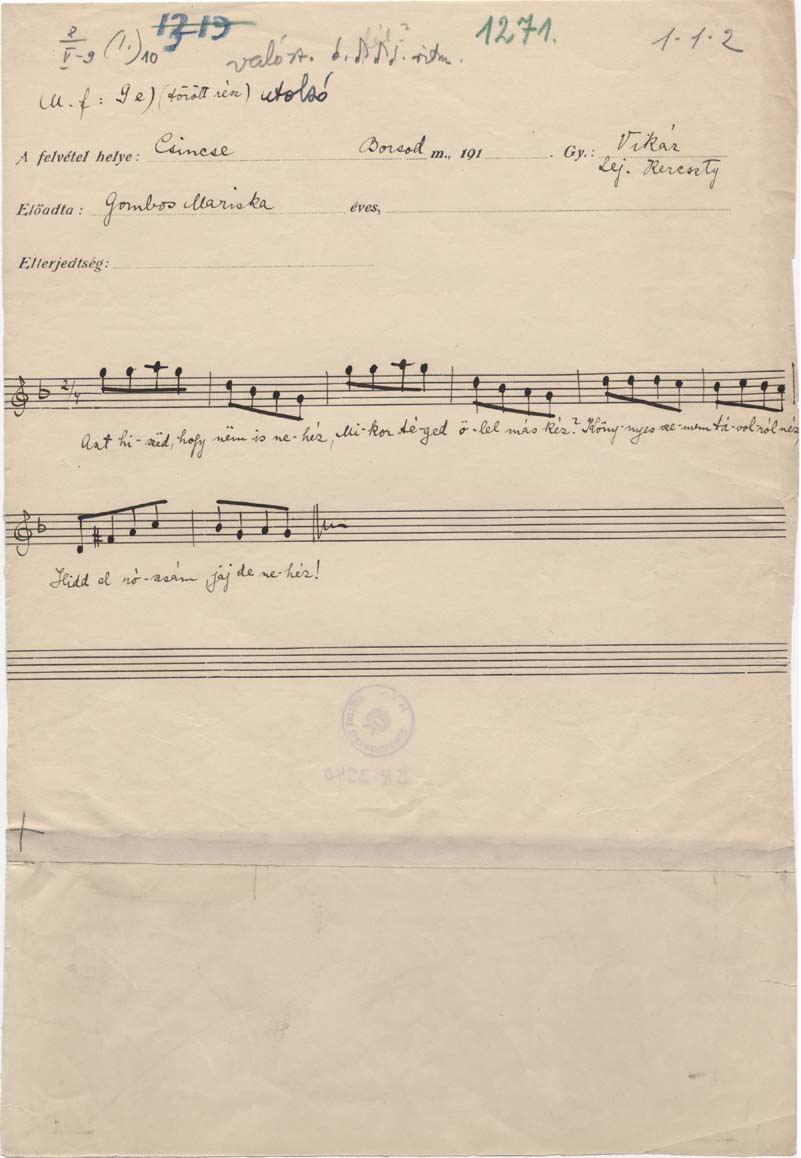 z
V-9 (1.) 10 13-19 való sz. ritm. 1271. 1-1-2
M. f: 9e) (törött rész) utolsó
A felvétel helye: Csincse Borsod m., 191 . Gy.: Vikár
Lej. Kereszty
Előadta: Gombos Mariska éves,
Elterjedtség:
2/4
Azt hi-szëd, hogy nëm is ne-héz, Mi-kor té-ged ö-lel más kéz? Köny-nyes sze-mem tá-vol-ról néz,
Hidd el ró-zsám, jaj de ne-héz!